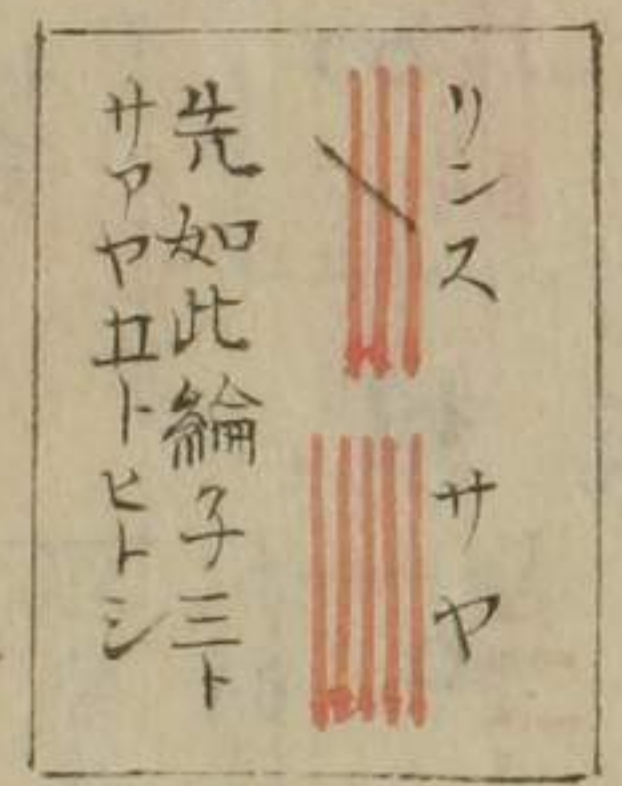 リンス
サヤ
先如此綸子三ト
サアヤ五トヒトシ